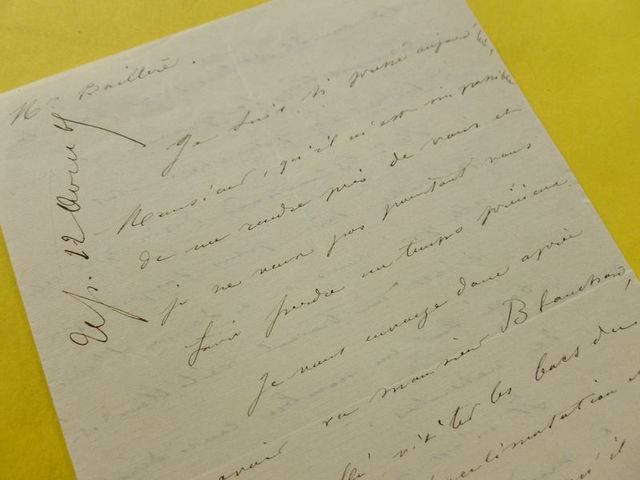 Mr Baillère.
Rép. 12 Aout
Je suis si pressé aujourd'hui,
Monsieur, qu'il m'est impossible
de me rendre près de vous et
je ne veux pas pourtant vous
faire perdre un temps précieux.
Je vous envoye donc après
avoir vu monsieur Blanchard,
visiter les bacs du
acclimatation et
il